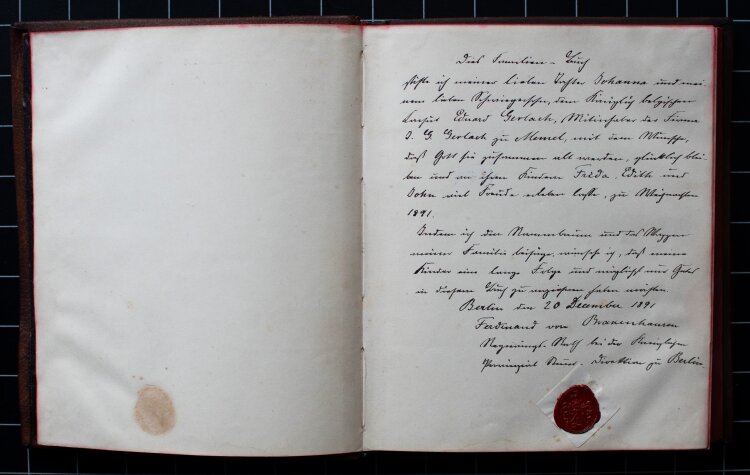 Dies Familien-Buch
stifte ich meiner lieben Tochter Johanna und mei-
nem lieben Schwiegersohn, dem Königlich belgischen
Consul Eduard Gerlach, Mitinhaber der Firma
J. G. Gerlach zu Memel, mit dem Wunsche,
daß Gott sie zusammen alt werden, glücklich blei-
ben und an ihren Kindern Frida, Edith und
John viel Freude erleben lasse, zu Weihnachten
1891.
Indem ich den Stammbaum und das Wappen
meiner Familie beifüge, wünsche ich, daß meine
Kinder eine lange Folge und möglichst nur Gutes
in diesem Buch zu verzeichnen haben möchten.
Berlin den 20 December 1891
Ferdinand von
Regierungs-Rath bei der Königlichen
Provinzial Steuer-Direktion zu Berlin.